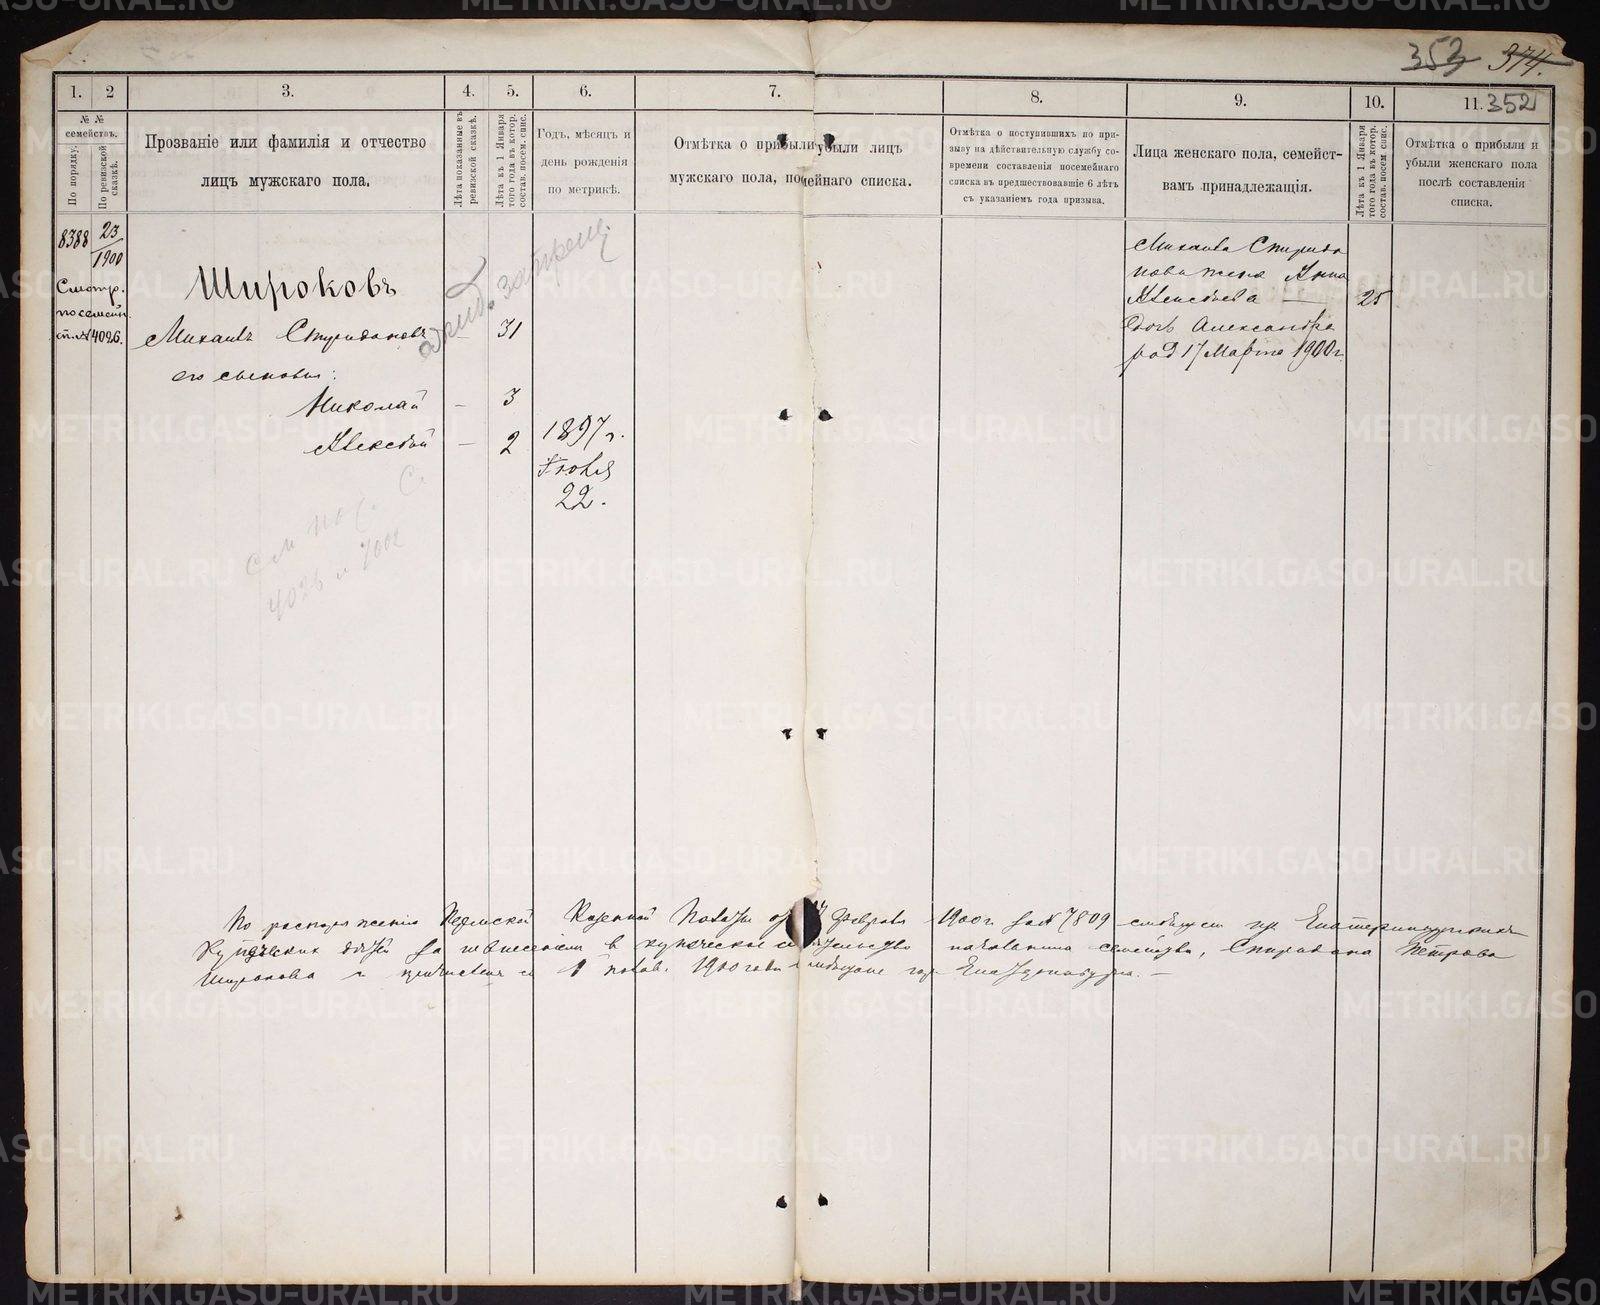 353 374.
352
1. 2 3. 4. 5. 6. 7. 8. 9. 10. 11.
№ №
семействъ.
По порядку.
По ревизской
сказкѣ.
Прозваніе или фамилія и отчество
лицъ мужскаго пола.
Лѣта показанные въ
ревизской сказкѣ.
Лѣта къ 1 Января
того года въ котор.
состав. посем. спис.
Годъ, мѣсяцъ и
день рожденія
по метрикѣ.
Отмѣтка о прибыли убыли лицъ
мужскаго пола, посемейнаго списка.
Отмѣтка о поступившихъ по при-
зыву на дѣйствительную службу со-
времени составленія посемейнаго
списка въ предшествовавшіе 6 лѣтъ
съ указаніемъ года призыва.
Лица женскаго пола, семейст-
вамъ принадлежащія.
Лѣта къ 1 Января
того года въ котор.
состав. посем. спис.
Отмѣтка о прибыли и
убыли женскаго пола
послѣ составленія
списка.
8388 23/1900
Смотр.
посемейн.
4026.
Широковъ
Михаилъ Спиридоновъ — 31
его сыновья:
Николай — 3
Алексѣй — 2
1897 г.
Іюля
22.
Михаила Спиридо
нова жена Анна
Алексѣева — 25
дочь Александра
род 17 Марта 1900 г.
см пос. С.
4026 и 7002
По распоряженію Пермской Казенной Палаты от Февраля 1900 г. за № 7809
Купеческих дѣтей въ купеческое семейства, Спиридона Петрова
Широкова и причислен с 1900 года гор. Екатеринбурга. —